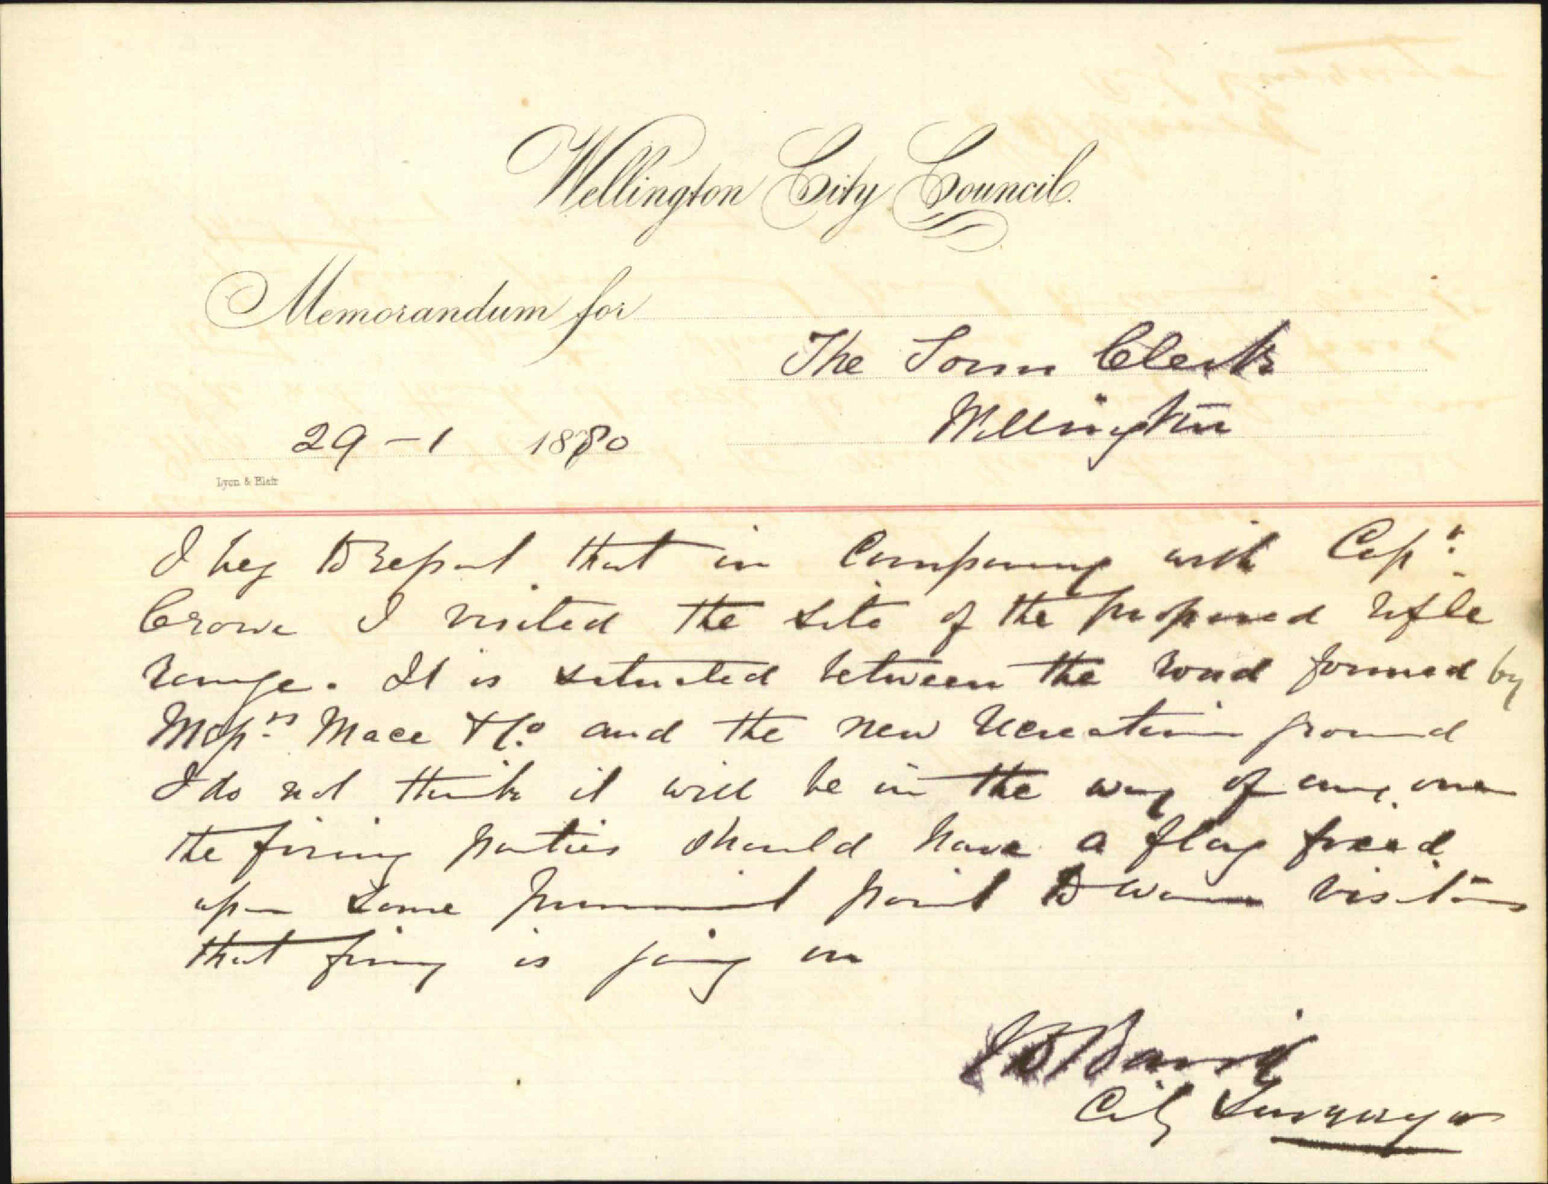 Wellington City Council.
Memorandum for
The Town Clerk
Wellington
29-1 1880
Lyon & Blair
I beg to report that in Company with Capt.
Crowe I visited the site of the proposed rifle
range. It is situated between the road formed by
Messrs Mace & Co. and the new Recreation ground
I do not think it will be in the way of any one
the firing parties should have a flag fixed
upon some prominent point to warn visitors
that firing is going on
J B Baird
City Surveyor